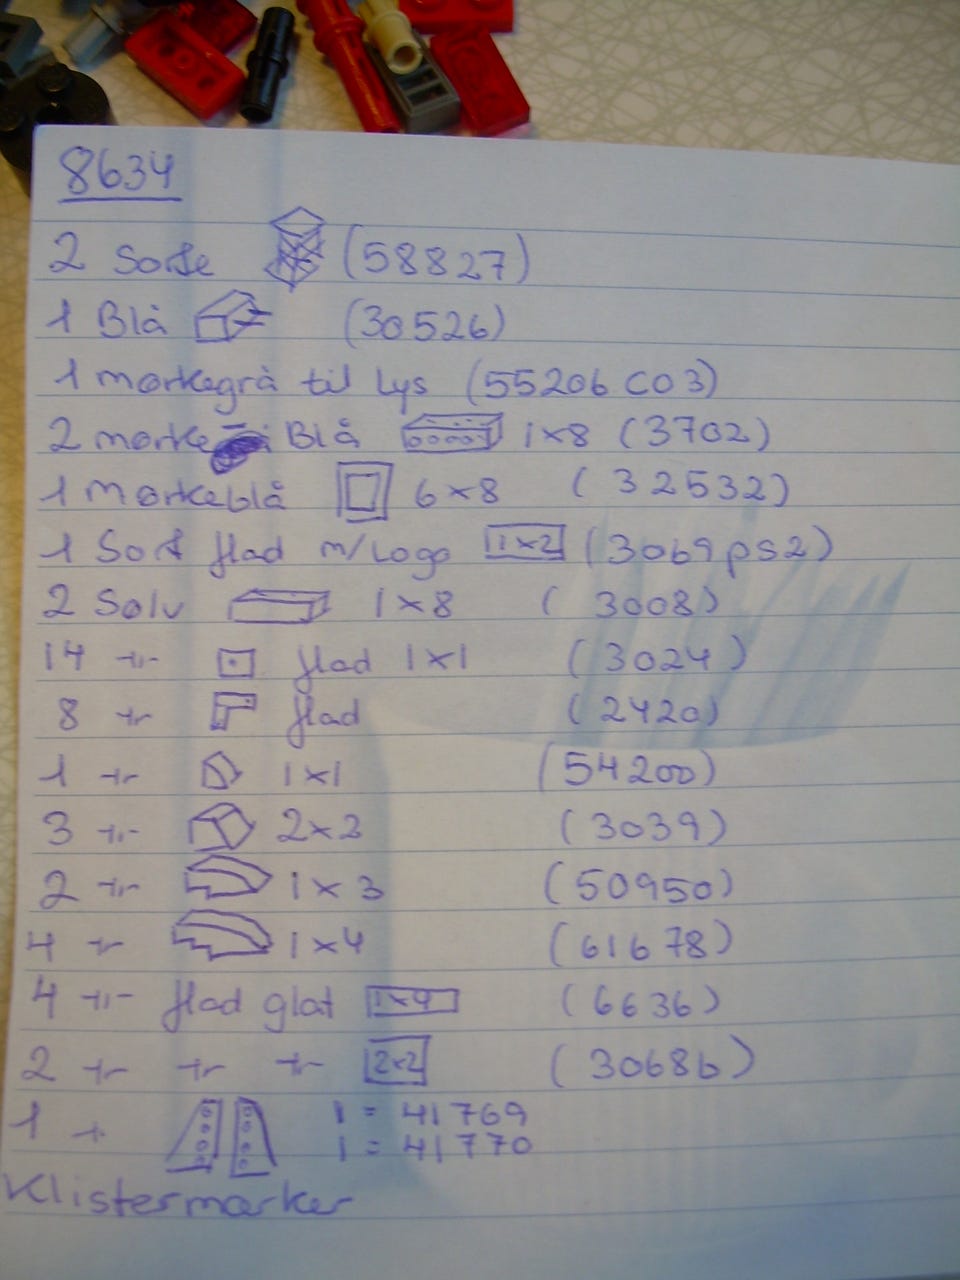 8634
2 Sorte (58827)
1 Blå (30526)
1 mørkegrå til Lys (55206 C03)
2 mørke Blå 1x8 (3702)
1 Mørkeblå 6x8 (32532)
1 Sort flad m/Logo 1x2 (3069ps2)
2 Sølv 1x8 (3008)
14 -"- flad 1x1 (3024)
8 -"- flad (2420)
1 -"- 1x1 (54200)
3 -"- 2x2 (3039)
2 -"- 1x3 (50950)
4 -"- 1x4 (61678)
4 -"- flad glat (6636)
2 -"- -"- -"- 2x2 (3068b)
1 -"- 1 = 41769
1 = 41770
Klistermærker